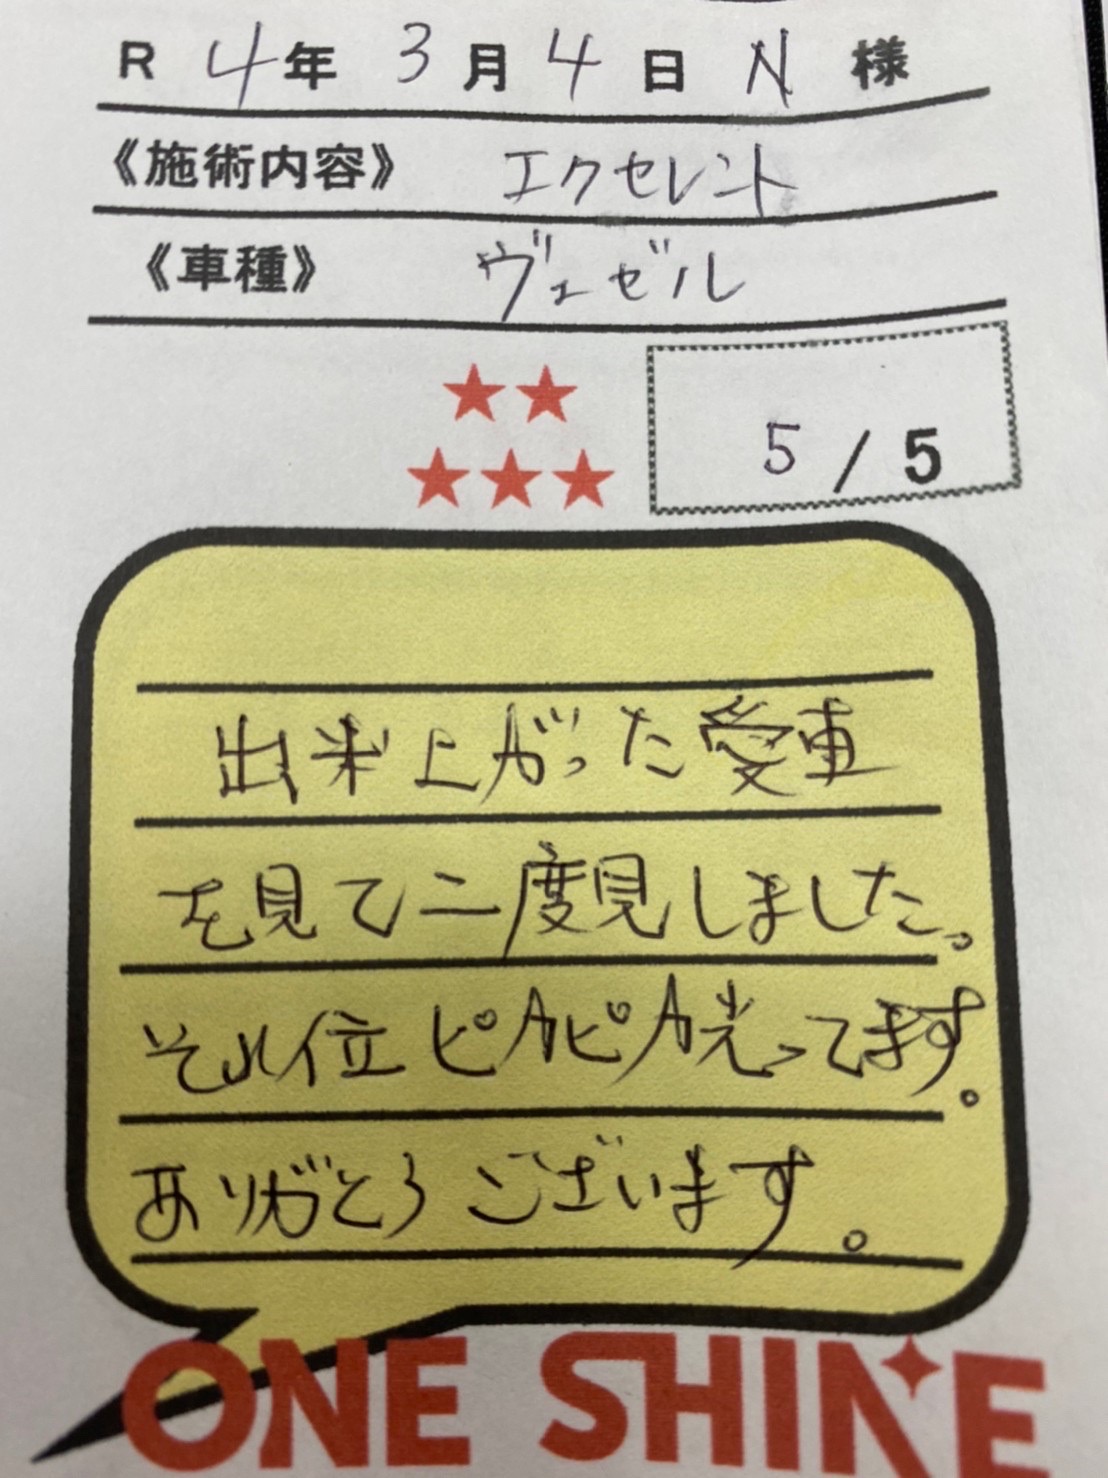 R 4年 3月 4日 N 様
《施術内容》 エクセレント
《車種》 ヴェゼル
5 / 5
出来上がった愛車
を見て二度見しました。
それ位ピカピカ光ってます。
ありがとうございます。
ONE SHINE